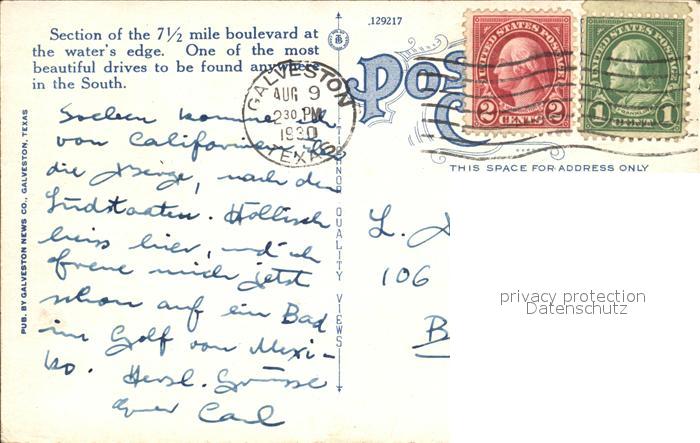 Section of the 7½ mile boulevard at
the water's edge. One of the most
beautiful drives to be found anywhere
in the South.
.129217
PUB. BY GALVESTON NEWS CO., GALVESTON, TEXAS
GALVESTON
AUG 9
2 30 PM
1930
TEXAS
UNITED STATES POSTAGE
2 CENTS 2
UNITED STATES POSTAGE
FRANKLIN
1 CENT 1
THIS SPACE FOR ADDRESS ONLY
QUALITY VIEWS
Soeben komme ich
von Californien,
die Berge, nach den
Südstaaten. Höllisch
heiss hier, und ich
freue mich jetzt
schon auf ein Bad
im Golf von Mexi-
ko. Herzl. Grüsse
Euer Carl
L.
106
B
privacy protection
Datenschutz